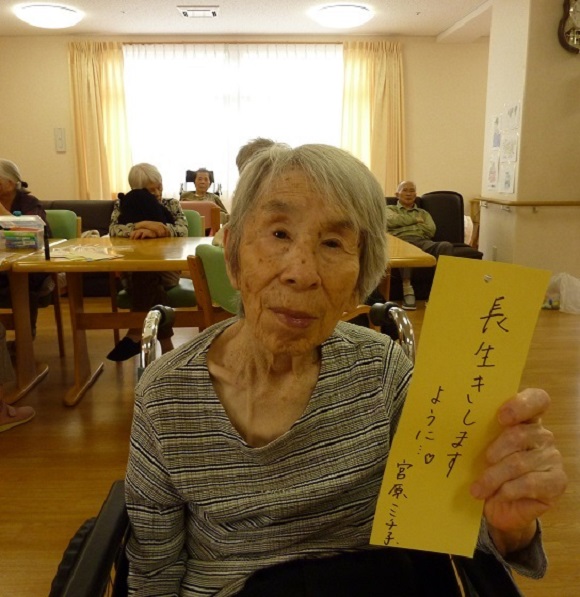 長生きします
ように…♡
宮原ミチ子